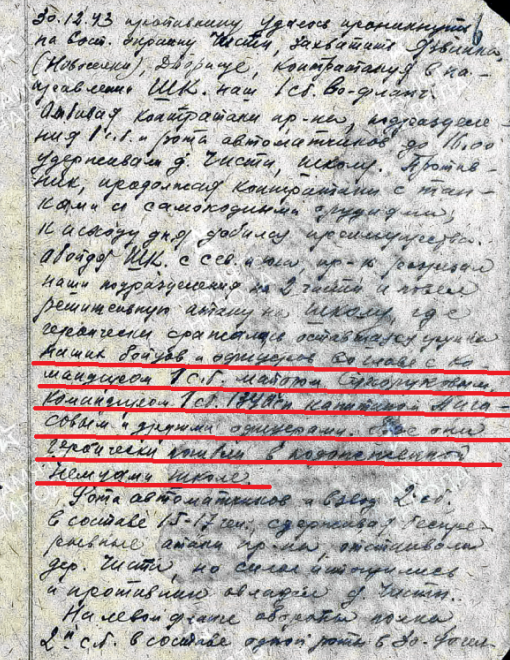 30.12.43 противнику удалось проникнуть
на вост. окраину Чисти, захватить
(Новоселки), Дворище, контратакуя в на-
правлении ШК. наш 1 сб. во фланг.
Отбивая контратаки пр-ка, подразделе-
ния 1 с.б. и рота автоматчиков до 16.00
удерживали д. Чисти, школу. Против-
ник, продолжая контратаки с тан-
ками и самоходными орудиями,
к исходу дня добился преимущества.
Обойдя ШК. с сев. и юга, пр-к разрезал
наши подразделения на 2 части и повел
решительную атаку на школу, где
героически сражалась оставшаяся группа
наших бойцов и офицеров во главе с ко-
мандиром 1 с.б. майором Сухоруковым
командиром 1 сб. капитаном
совым и другими офицерами. Все они
героически погибли в подожженной
немцами школе.
Рота автоматчиков и взвод 2 сб.
в составе 15-17 чел. сдерживая беспре-
рывные атаки пр-ка, отстаивали
дер. Чисти, но силы истощились
и противник овладел д. Чисти.
На левом фланге обороны полка
2й с.б. в составе одной роты в